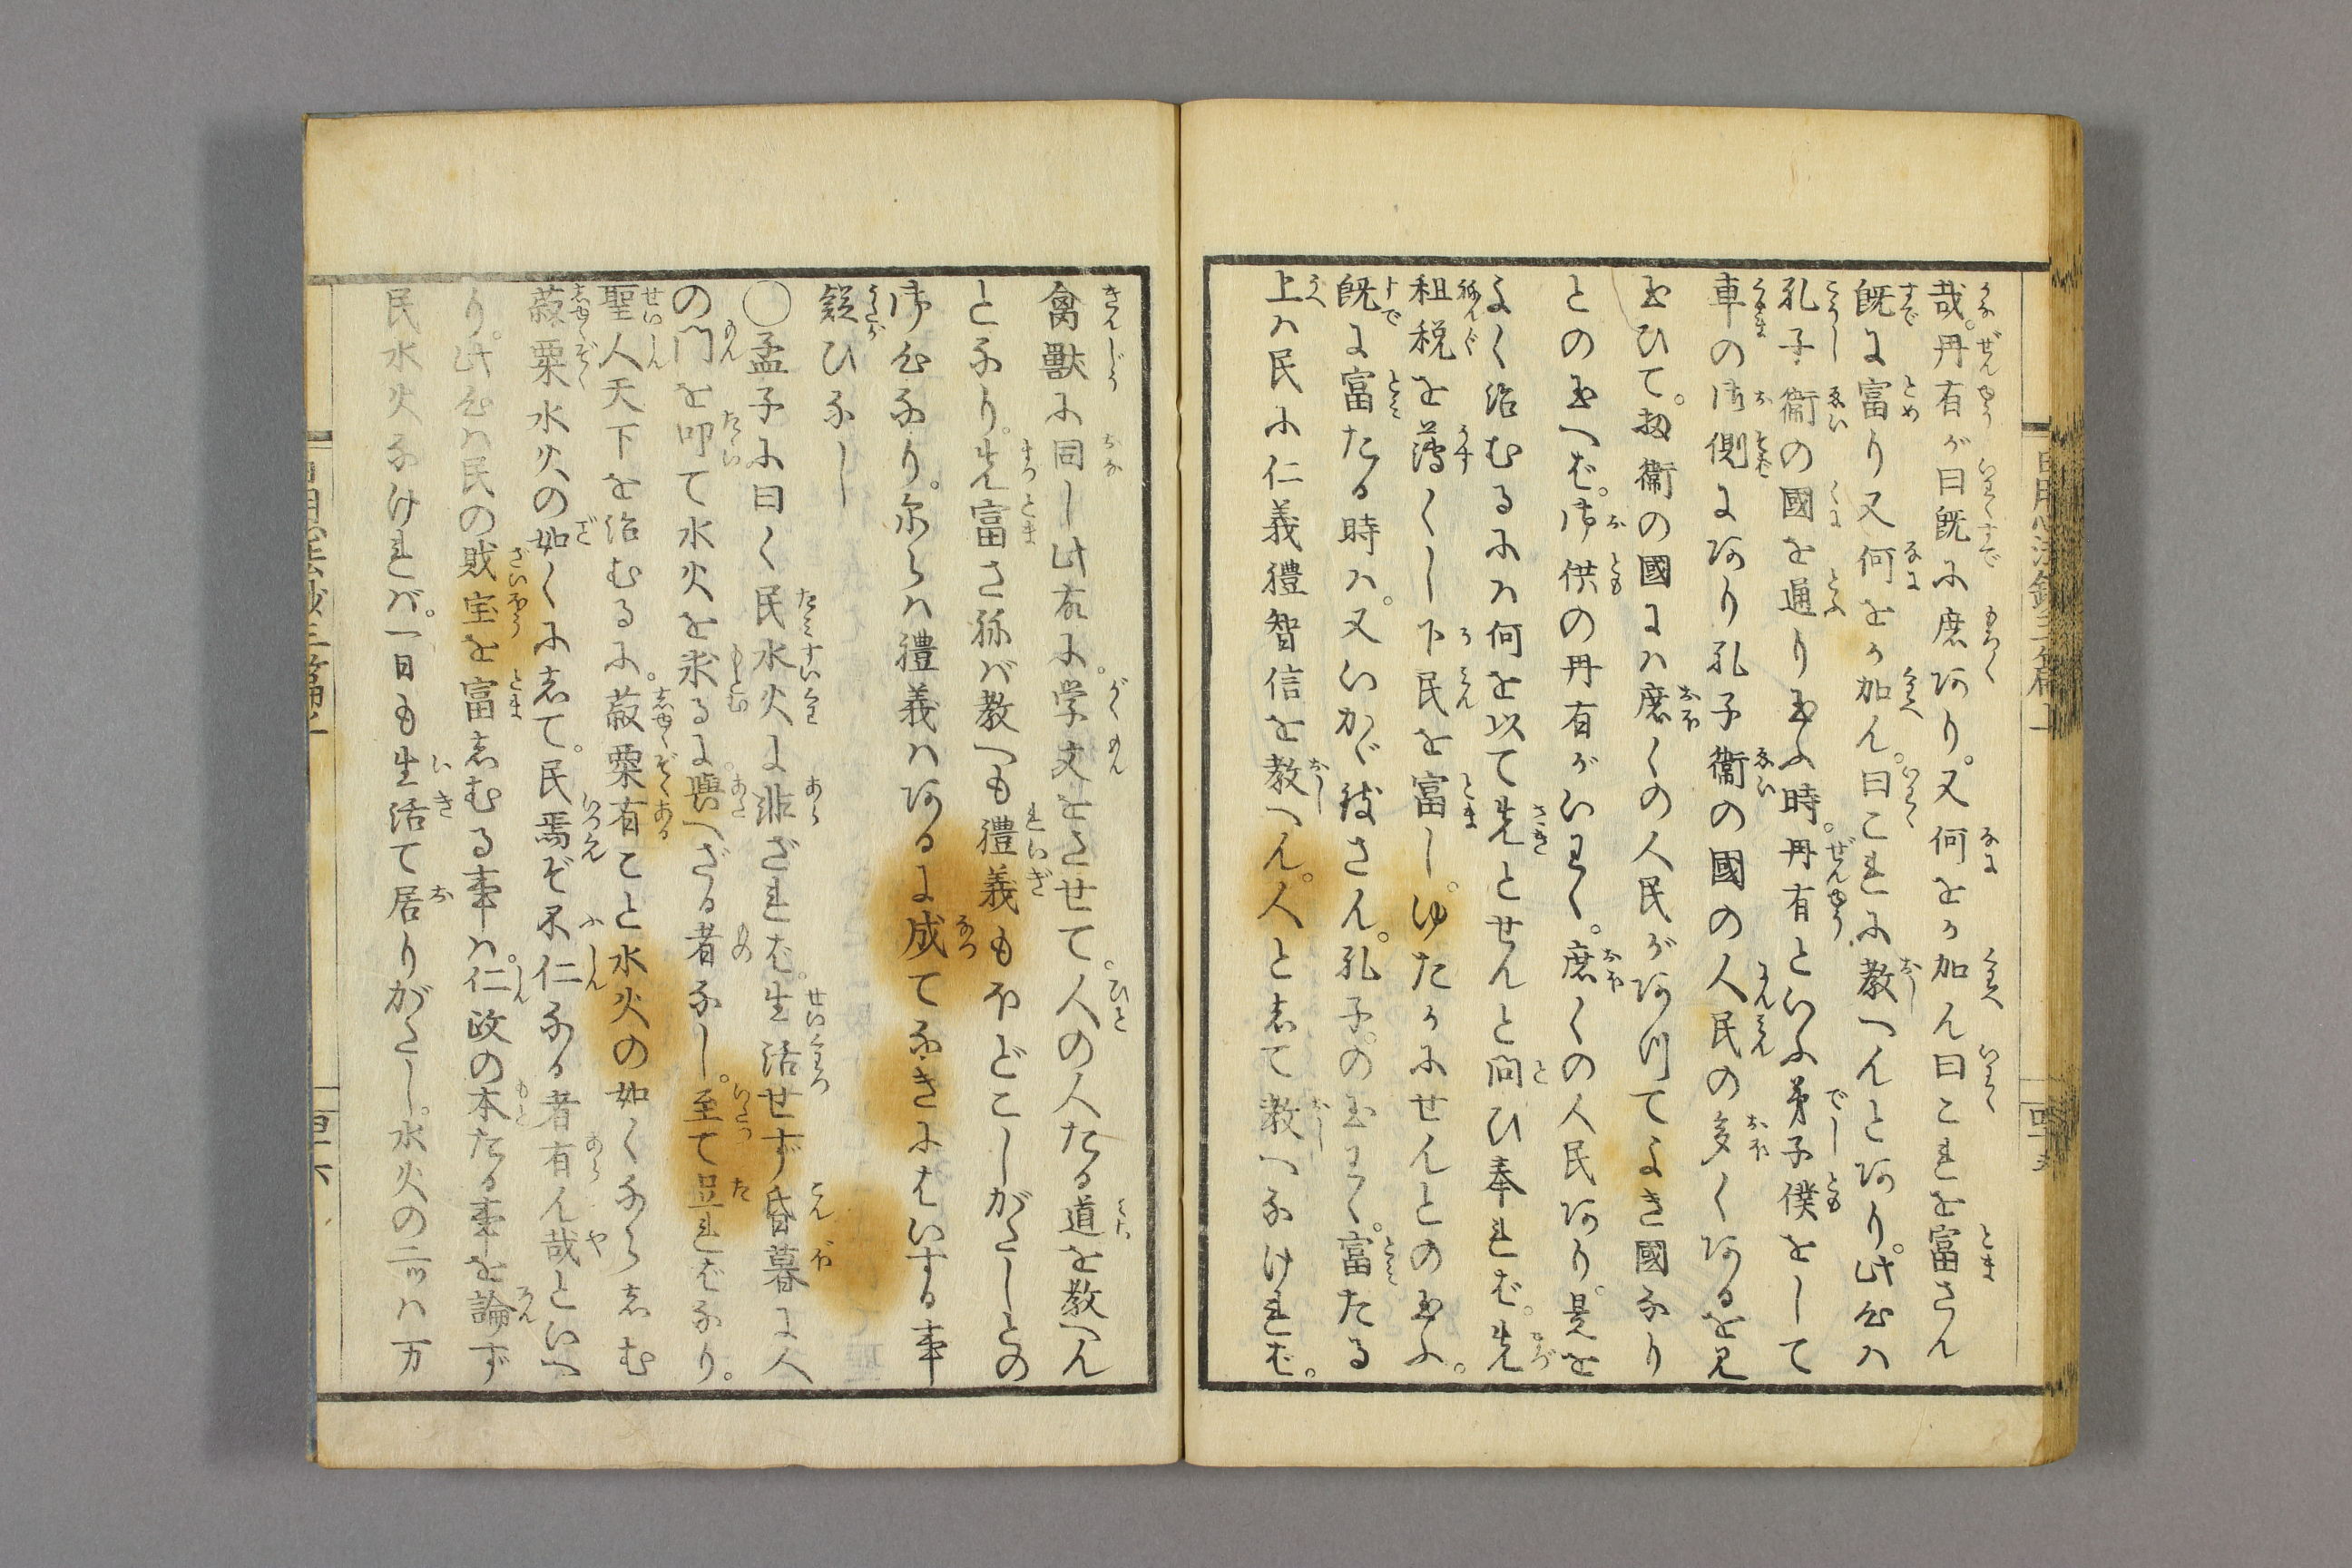 哉。冉有が曰既に庶あり。又何をか加ん曰これを富さん
既に富り又何をか加ん。曰これに教へんとあり。此心ハ
孔子衞の國を通り玉ふ時。冉有といふ弟子僕をして
車の御側にあり孔子衞の國の人民の多くあるを見
玉ひて。扨衞の國にハ庶くの人民があつてよき國なり
との玉へば。御供の冉有がいわく。庶くの人民あり。是を
よく治むるにハ何を以て先とせんと問ひ奉れば。先
租税を薄くし下民を富し。ゆたかにせんとの玉ふ。
既に富たる時ハ。又いかゞ致さん。孔子。の玉わく。富たる
上ハ民に仁義禮智信を教へん。人と志て教へなければ。
禽獣に同し此故に。学文をさせて。人の人たる道を教へん
となり。先富さ祢バ教へも禮義もほどこしがたしとの
御心なり。尓らハ禮義ハあるに成てなきにはいする事
疑ひなし
〇孟子に曰く民水火に非ざれば。生活せず昏暮に人
の門を叩て水火を求るに。與へざる者なし。至て足ればなり。
聖人天下を治むるに。菽粟有こと水火の如くならしむ
菽粟水火の如くに志て。民焉ぞ不仁なる者有ん哉といへ
り。此心ハ民の財宝を富志むる事ハ。仁政の本たる事を論ず
民水火なけれバ。一日も生活て居りがたし。水火の二ツハ万